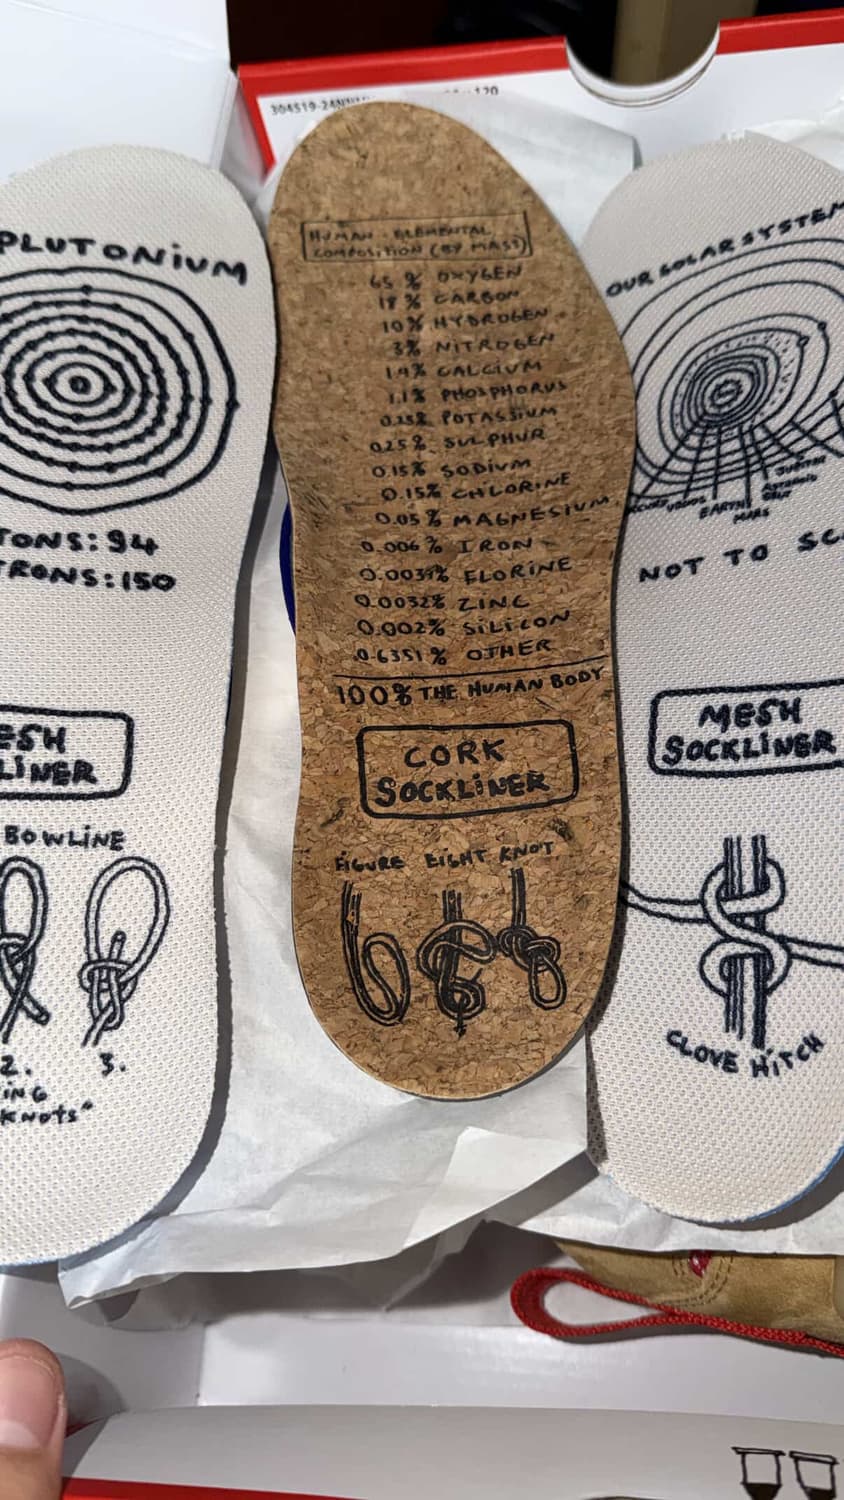 120
PLUTONIUM
TONS: 94
TRONS: 150
ESH
LINER
BOWLINE
2. 3.
ING
KNOTS"
HUMAN - ELEMENTAL
COMPOSITION (BY MASS)
65 % OXYGEN
18 % CARBON
10% HYDROGEN
3% NITROGEN
1.4% CALCIUM
1.1% PHOSPHORUS
0.25% POTASSIUM
0.25% SULPHUR
0.15% SODIUM
0.15% CHLORINE
0.05% MAGNESIUM
0.006% IRON
0.0037% FLORINE
0.0032% ZINC
0.002% SILICON
0.6351% OTHER
100% THE HUMAN BODY
CORK
SOCKLINER
FIGURE EIGHT KNOT
OUR SOLAR SYSTEM
VENUS
EARTH
MARS
JUPITER
NOT TO SC
MESH
SOCKLINER
CLOVE HITCH